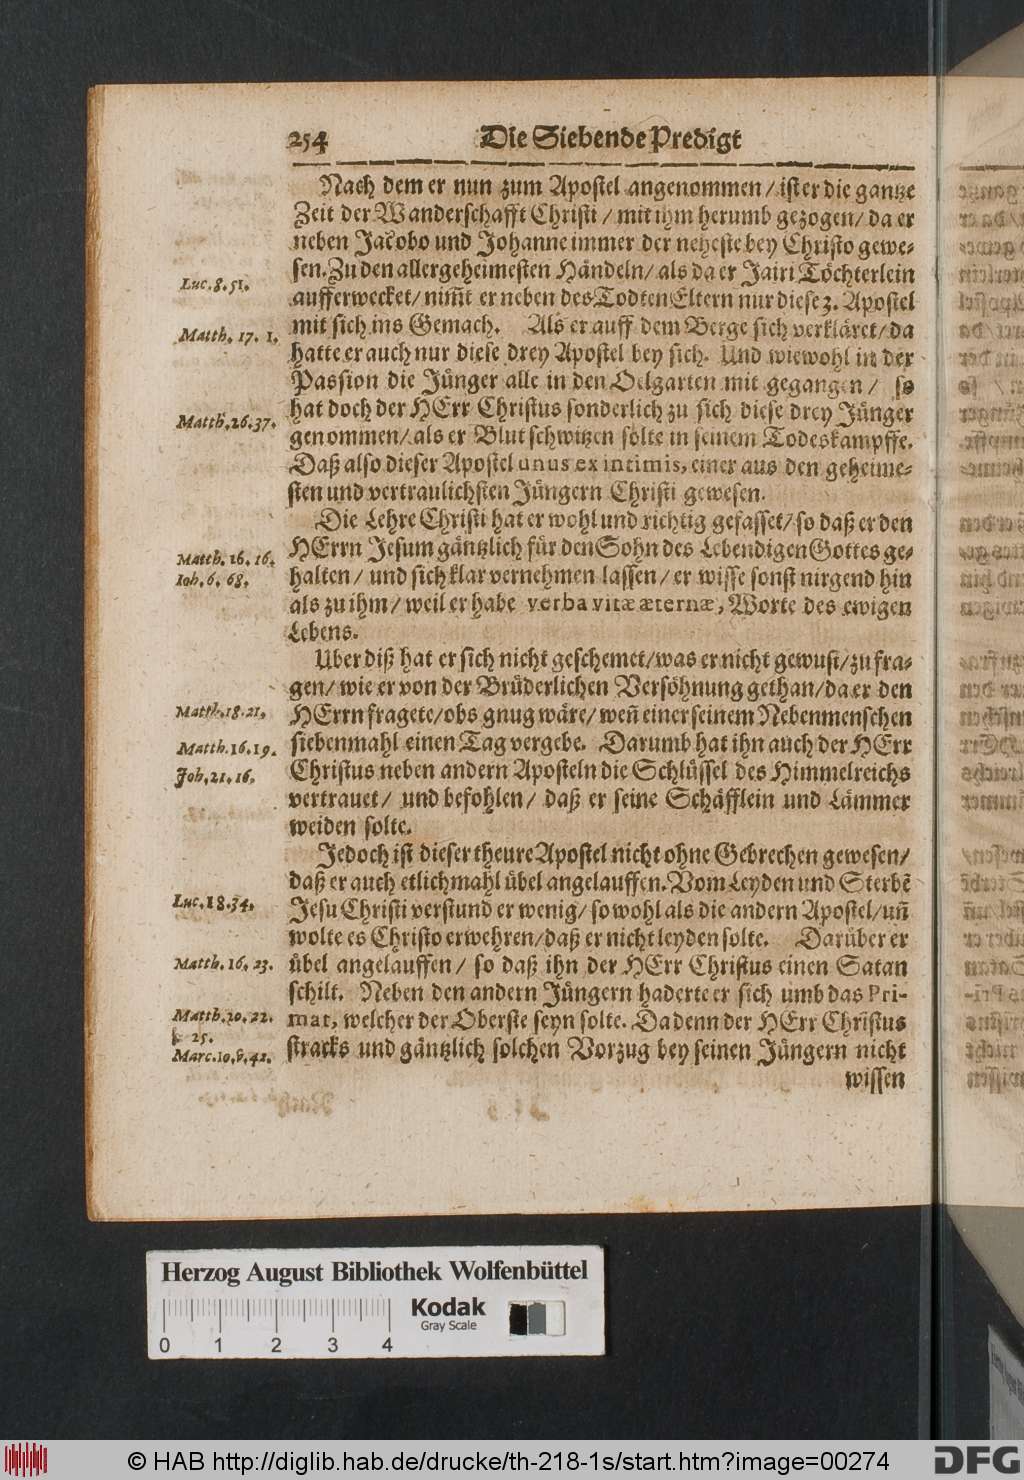 254 Die Siebende Predigt
Nach dem er nun zum Apostel angenommen / ist er die gantze
Zeit der Wanderschafft Christi / mit ihm herumb gezogen / da er
neben Jacobo und Johanne immer der neheste bey Christo gewe-
sen. Zu den allergeheimesten Händeln / als da er Jairi Töchterlein
Luc. 8. 51.
aufferwecket / nim̃t er neben des Todten Eltern nur diese 3. Apostel
mit sich ins Gemach. Als er auff dem Berge sich verkläret / da
Matth. 17. 1.
hatte er auch nur diese drey Apostel bey sich. Und wiewohl in der
Passion die Jünger alle in den Oelgarten mit gegangen / so
hat doch der HErr Christus sonderlich zu sich diese drey Jünger
Matth. 26. 37.
genommen / als er Blut schwitzen solte in seinem Todeskampffe.
Daß also dieser Apostel unus ex intimis, einer aus den geheime-
sten und vertraulichsten Jüngern Christi gewesen.
Die Lehre Christi hat er wohl und richtig gefasset / so daß er den
HErrn Jesum gäntzlich für den Sohn des Lebendigen Gottes ge-
Matth. 16. 16.
halten / und sich klar vernehmen lassen / er wisse sonst nirgend hin
Ioh. 6. 68.
als zu ihm / weil er habe verba vitæ æternæ, Worte des ewigen
Lebens.
Uber diß hat er sich nicht geschemet / was er nicht gewust / zu fra-
gen / wie er von der Brüderlichen Versöhnung gethan / da er den
HErrn fragete / obs gnug wäre / weñ einer seinem Nebenmenschen
Matth. 18. 21.
siebenmahl einen Tag vergebe. Darumb hat ihn auch der HErr
Matth. 16. 19.
Christus neben andern Aposteln die Schlüssel des Himmelreichs
Joh. 21. 16.
vertrauet / und befohlen / daß er seine Schäfflein und Lämmer
weiden solte.
Jedoch ist dieser theure Apostel nicht ohne Gebrechen gewesen /
daß er auch etlichmahl übel angelauffen. Vom Leyden und Sterbẽ
Jesu Christi verstund er wenig / so wohl als die andern Apostel / uñ
Luc. 18. 34.
wolte es Christo erwehren / daß er nicht leyden solte. Darüber er
übel angelauffen / so daß ihn der HErr Christus einen Satan
Matth. 16. 23.
schilt. Neben den andern Jüngern haderte er sich umb das Pri-
mat, welcher der Oberste seyn solte. Da denn der HErr Christus
Matth. 20. 22.
& 25.
stracks und gäntzlich solchen Vorzug bey seinen Jüngern nicht
Marc. 10. v. 42.
wissen
Herzog August Bibliothek Wolfenbüttel
Kodak
Gray Scale
0 1 2 3 4
© HAB http://diglib.hab.de/drucke/th-218-1s/start.htm?image=00274
DFG